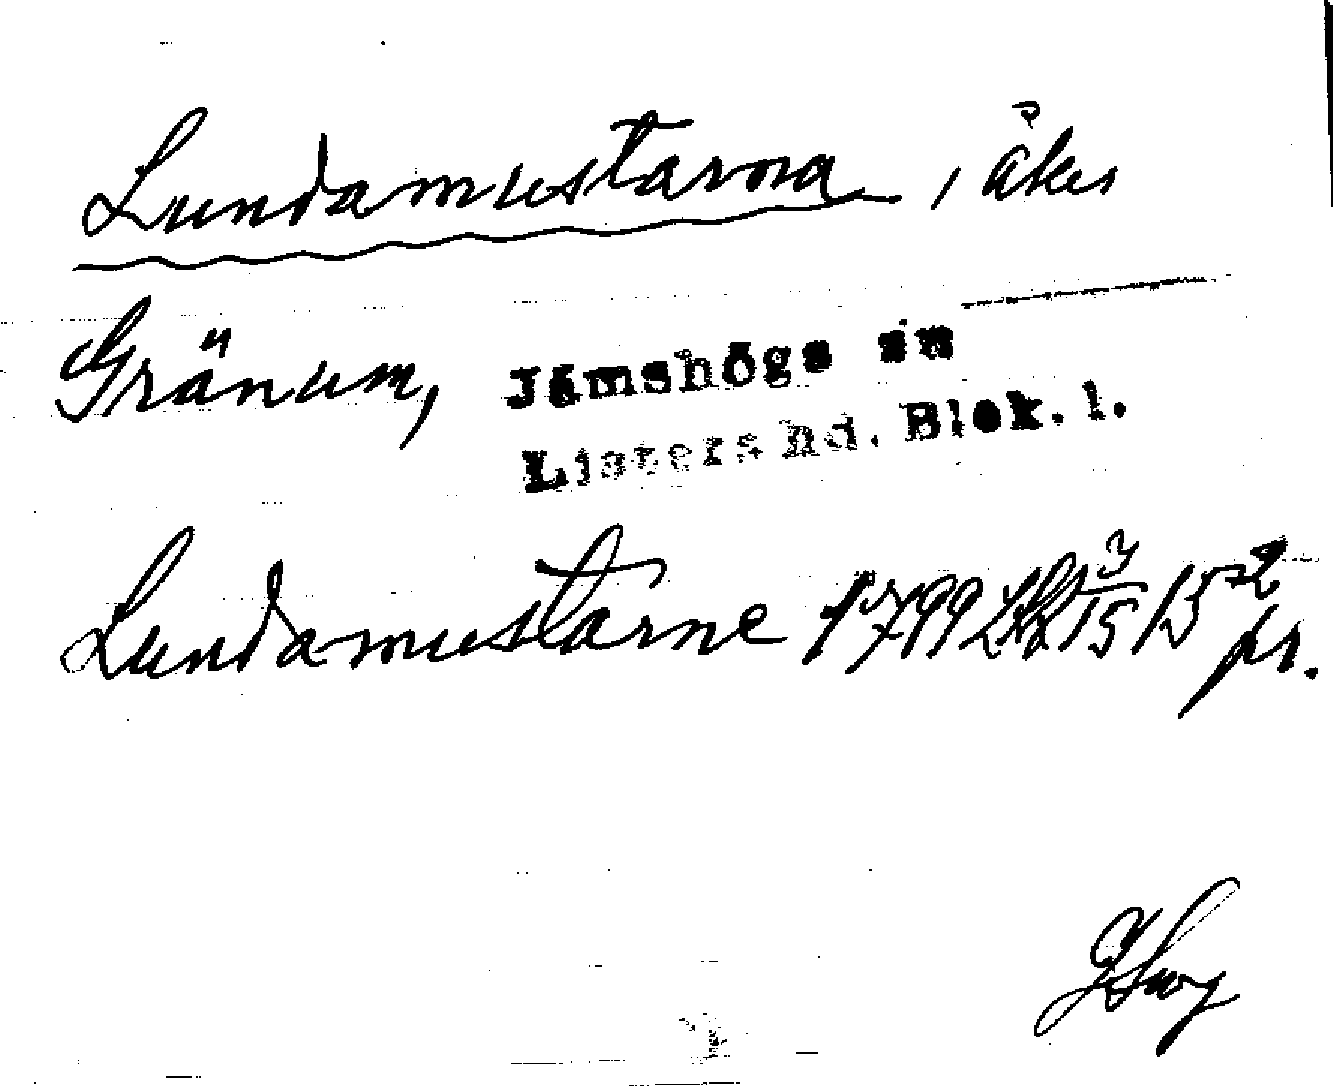 Lundamustarna, åker
Gränum, Jämshögs sn
Listers hd. Blek. l.
Lundamustarne 1799 15 pr.